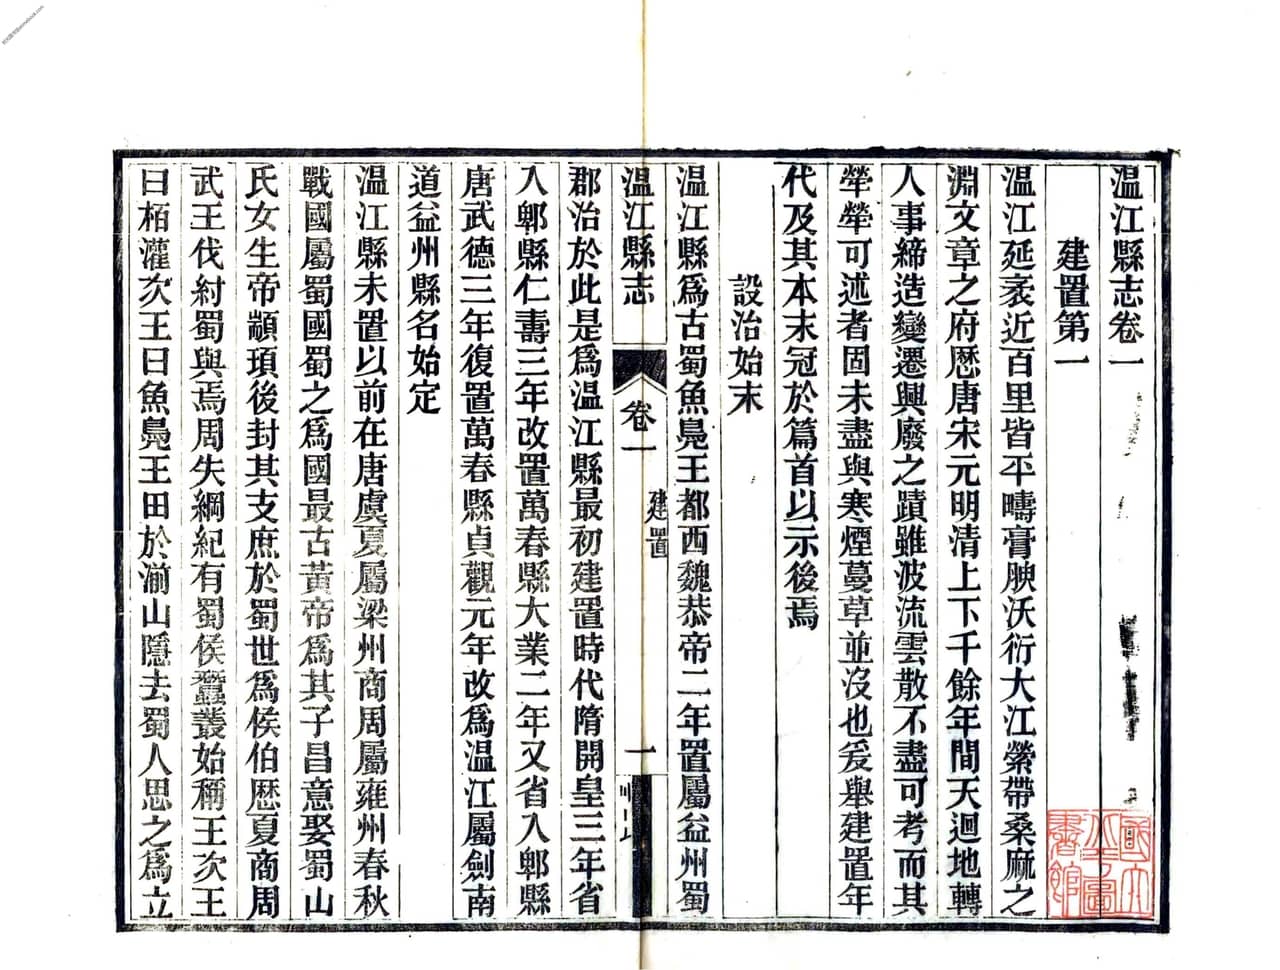 溫江縣志卷一
建置第一
溫江延袤近百里皆平疇膏腴沃衍大江縈帶桑麻之
淵文章之府歷唐宋元明清上下千餘年間天迴地轉
人事締造變遷興廢之蹟雖波流雲散不盡可考而其
犖犖可述者固未盡與寒煙蔓草並沒也爰舉建置年
代及其本末冠於篇首以示後焉
設治始末
溫江縣爲古蜀魚鳧王都西魏恭帝二年置屬益州蜀
溫江縣志
卷一
建置
一
郡治於此是爲溫江縣最初建置時代隋開皇三年省
入郫縣仁壽三年改置萬春縣大業二年又省入郫縣
唐武德三年復置萬春縣貞觀元年改爲溫江屬劍南
道益州縣名始定
溫江縣未置以前在唐虞夏屬梁州商周屬雍州春秋
戰國屬蜀國蜀之爲國最古黃帝爲其子昌意娶蜀山
氏女生帝顓頊後封其支庶於蜀世爲侯伯歷夏商周
武王伐紂蜀與焉周失綱紀有蜀侯蠶叢始稱王次王
曰栢灌次王曰魚鳧王田於湔山隱去蜀人思之爲立
國立北平圖書館